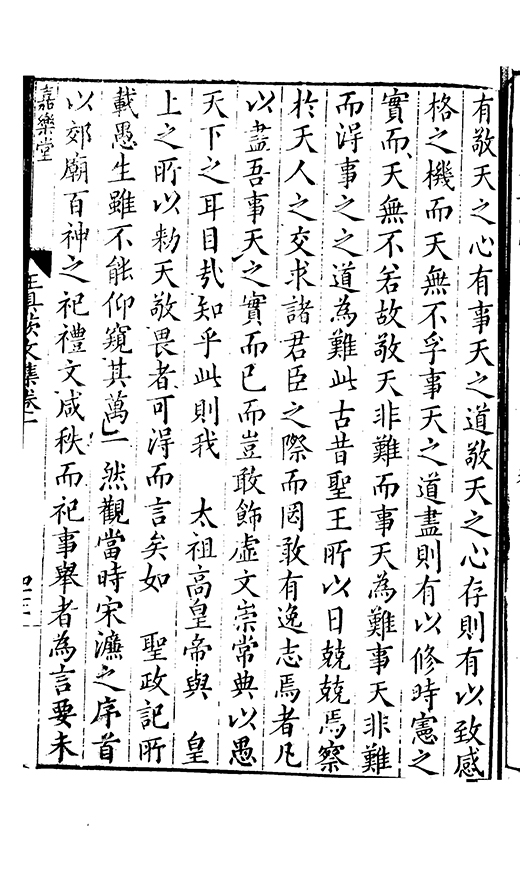 有敬天之心有事天之道敬天之心存則有以致感
格之機而天無不孚事天之道盡則有以修時憲之
實而天無不若故敬天非難而事天為難事天非難
而得事之之道為難此古昔聖王所以日兢兢焉察
於天人之交求諸君臣之際而罔敢有逸志焉者凡
以盡吾事天之實而已而豈敢飾虛文崇常典以愚
天下之耳目㢤知乎此則我 太祖高皇帝與 皇
上之所以勑天敬畏者可得而言矣如 聖政記所
載愚生雖不能仰窺其萬一然觀當時宋濂之序首
以郊廟百神之祀禮文咸秩而祀事舉者為言要未
嘉樂堂
文集卷一